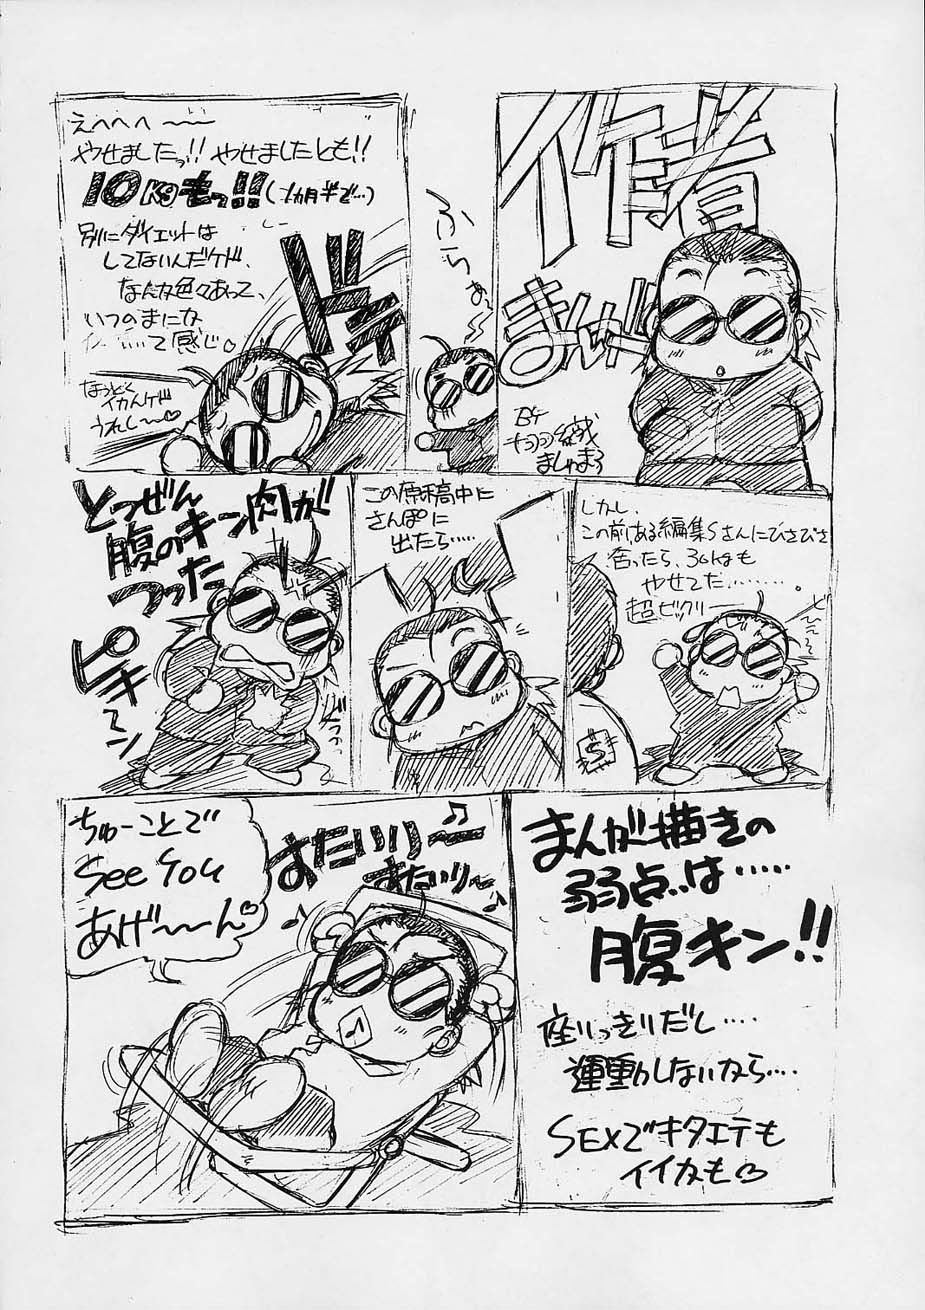 作者
まんが
BY
ましゅまろ
ふらぁ
えへへへ〜〜
やせましたっ!! やせましたとも!!
10Kgもっ!!(一ヵ月半で…)
別にダイエットは
してないんだケド、
なんか色々あって、
いつのまにな
て感じ♡
なっとく
イカんケド
うれし〜〜♡
しかし、
この前、ある編集Sさんにひさびさ
会ったら、30kgも
やせてた………。
超ビックリ――
S
この原稿中に
さんぽに
出たら……
とつぜん
腹のキン肉が
つった
ピキーン
まんが描きの
弱点は……
腹キン!!
座りっきりだし…
運動しないなら…
SEXでキタエテも
イイかも♡
ちゅーことで
See You
あげ〜〜ん♡